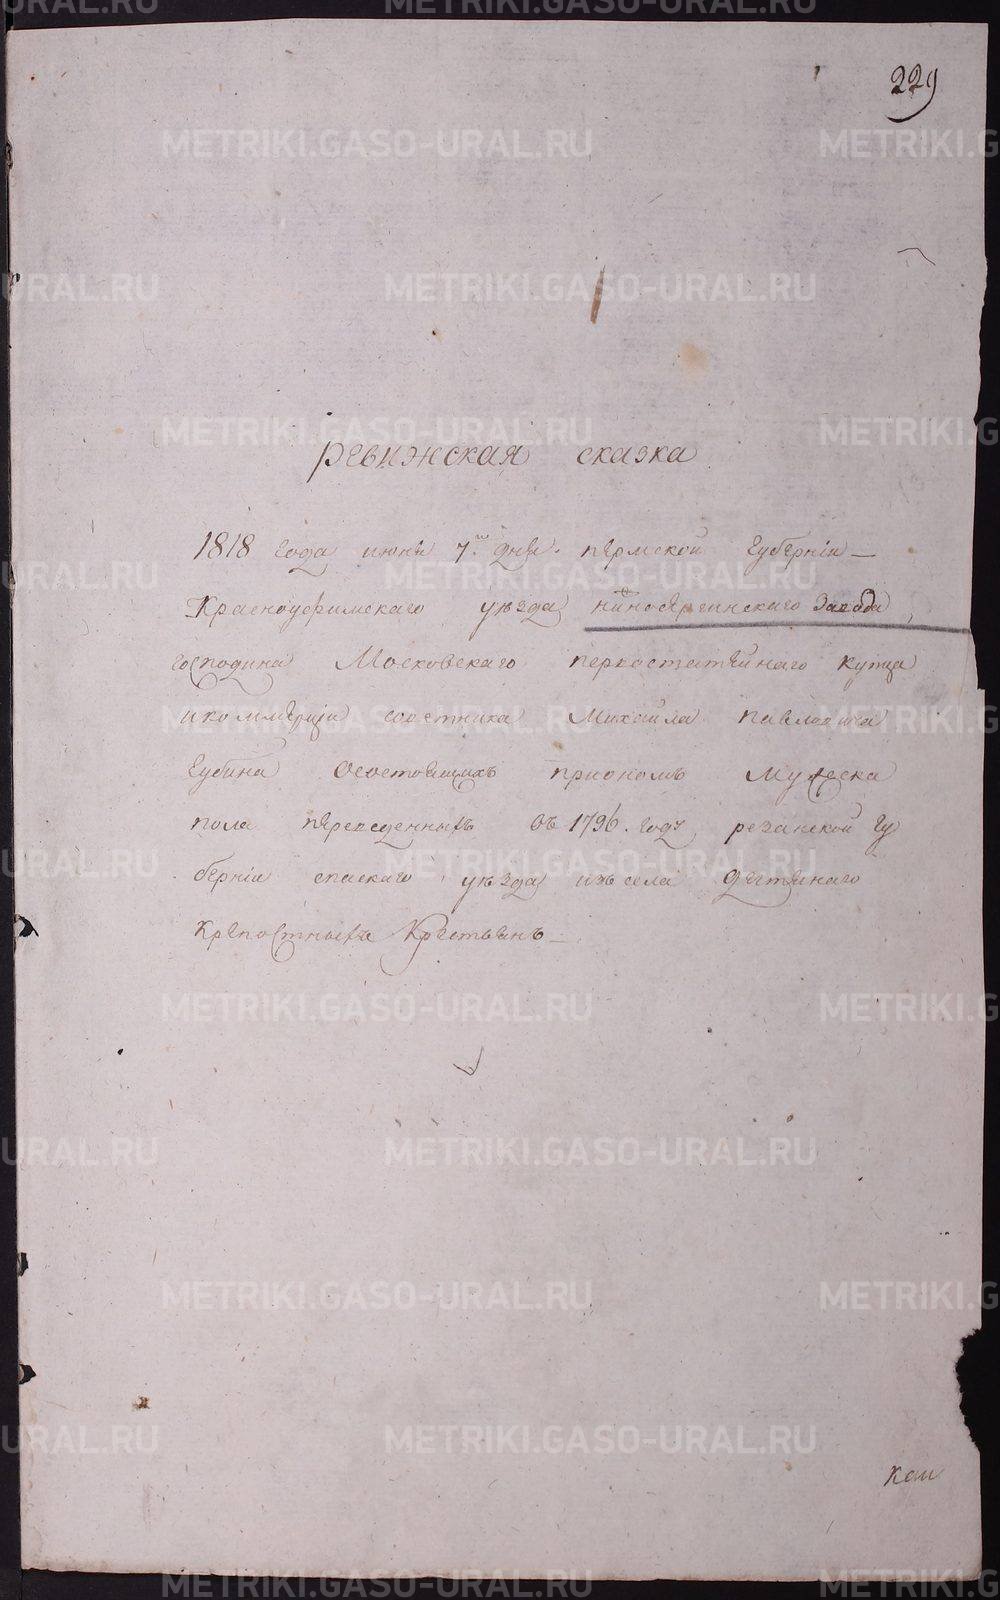 229
ревизская сказка
1818 года июня 7го дня. пермской губернiи —
Красноуфимского уезда нижносергинскаго завода
господина Московскаго первостатейнаго купца
и коммерцiи советника Михаила павловича
губина о состоящихъ при ономъ мужеска
пола переведенныхъ въ 1796. году резанской гу
бернiи спаскаго уезда изъ села дегтянаго
крепостныхъ крестьянъ —
METRIKI.GASO-URAL.RU